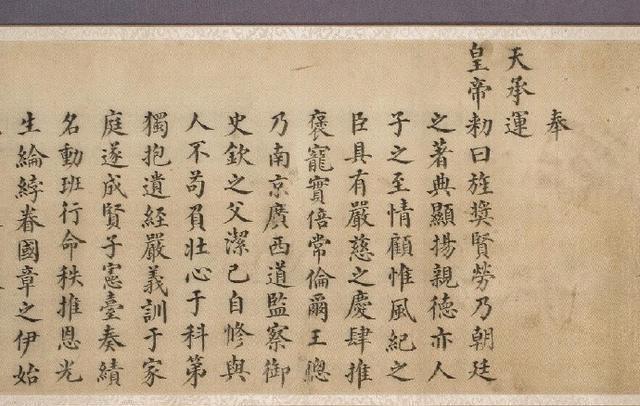 奉
天承運
皇帝勑曰旌奬賢勞乃朝廷
之著典顯揚親德亦人
子之至情顧惟風紀之
臣具有嚴慈之慶肆推
褒寵實倍常倫爾王
乃南京廣西道監察御
史欽之父潔己自修與
人不苟負壯心于科第
獨抱遺經嚴義訓于家
庭遂成賢子憲臺奏績
名動班行命秩推恩光
生綸綍眷國章之伊始